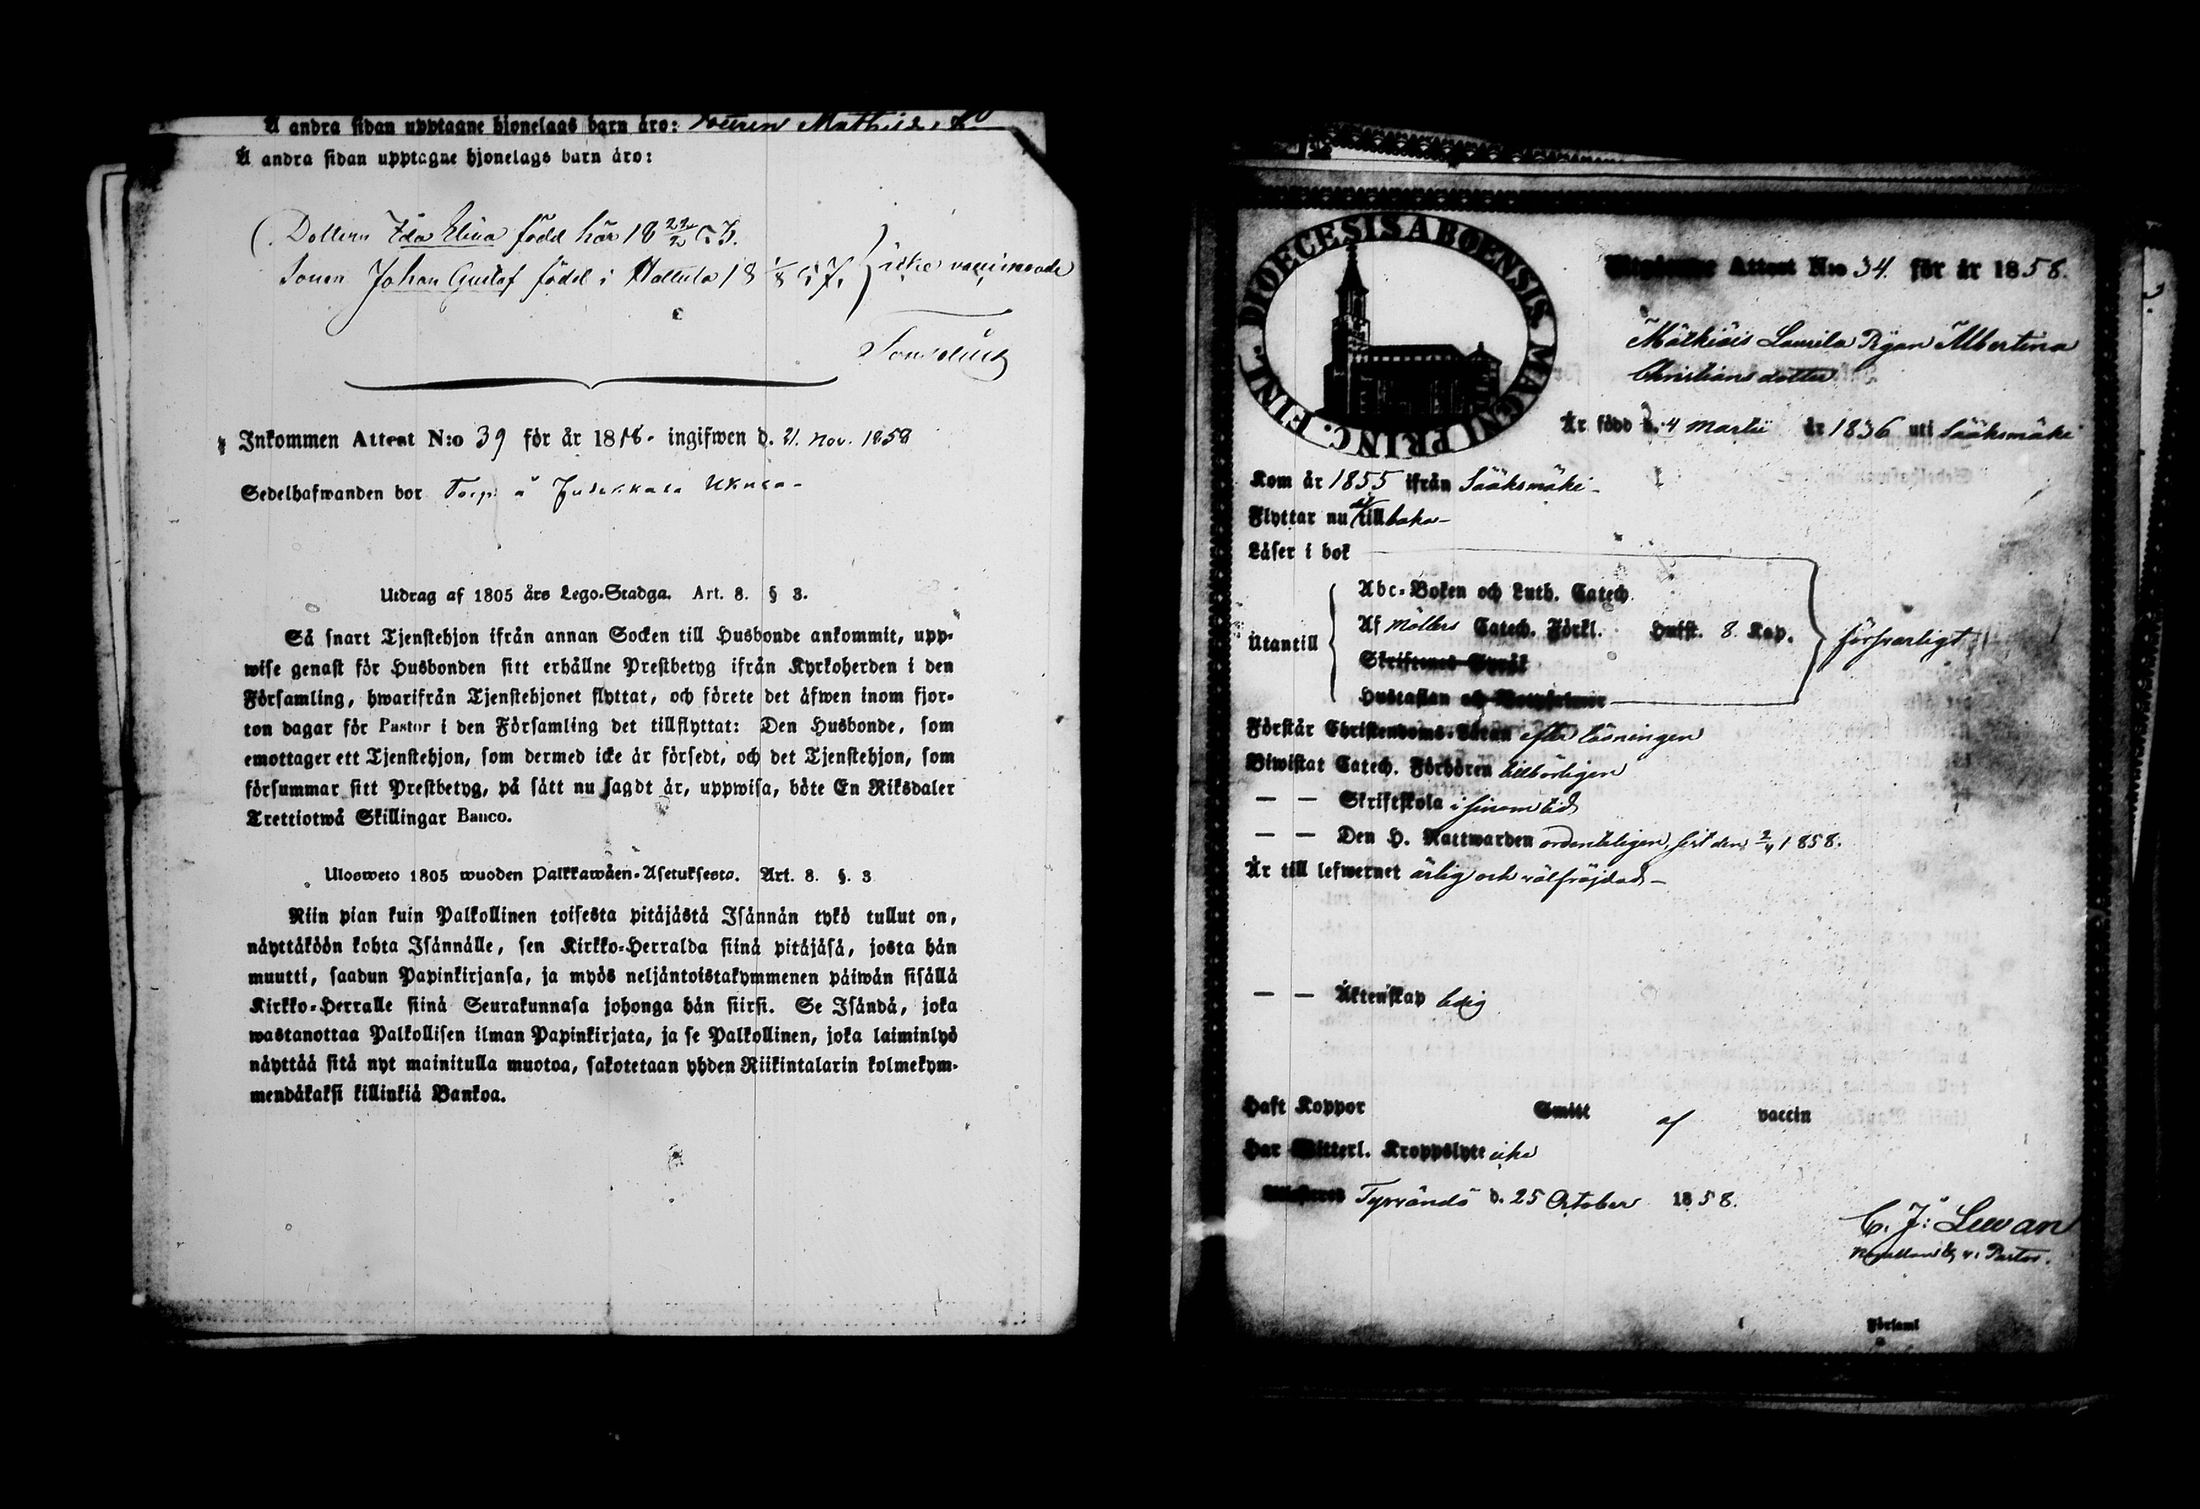 Å andra sidan upptagne hjonelags barn äro:
Å andra sidan upptagne hjonelags barn äro:
Dottern Ida Elina född här 18 22/2 53.
Sonen Johan Gustaf född i Hollola 18 1/8 57. } icke vaccinerade
Inkommen Attest N:o 39 för år 1858. ingifwen d. 21. Nov. 1858
Sedelhafwanden bor Torp å
Utdrag af 1805 års Lego-Stadga. Art. 8. § 3.
Så snart Tjenstehjon ifrån annan Socken till Husbonde ankommit, upp-
wise genast för Husbonden sitt erhållne Prestbetyg ifrån Kyrkoherden i den
Församling, hwarifrån Tjenstehjonet flyttat, och förete det äfwen inom fjor-
ton dagar för Pastor i den Församling det tillflyttat: Den Husbonde, som
emottager ett Tjenstehjon, som dermed icke är försedt, och det Tjenstehjon, som
försummar sitt Prestbetyg, på sätt nu sagdt är, uppwisa, böte En Riksdaler
Trettiotwå Skillingar Banco.
Ulosweto 1805 wuoden Palkkawäen-Asetuksesta. Art. 8. §. 3
Niin pian kuin Palkollinen toisesta pitäjästä Isännän tykö tullut on,
näyttäköön kohta Isännälle, sen Kirkko-Herralda siinä pitäjäsä, josta hän
muutti, saadun Papinkirjansa, ja myös neljäntoistakymmenen päiwän sisällä
Kirkko-Herralle siinä Seurakunnasa johonga hän siirsi. Se Isändä, joka
wastanottaa Palkollisen ilman Papinkirjata, ja se Palkollinen, joka laiminlyö
näyttää sitä nyt mainitulla muotoa, sakotetaan yhden Riikintalarin kolmekym-
mendäkaksi killinkiä Bankoa.
DIOECESIS ABOENSIS. MAGNI PRINC. FINL.
Attest N:o 34. för år 1858.
Laurila Pigan Albertina
Christiansdotter
Är född d. 4 Martii år 1836 uti Sääksmäki
Kom år 1855 ifrån Sääksmäki
Flyttar nu dit tillbaka
Läser i bok
Abc-Boken och Luth. Catech.
Utantill
Af Möllers Catech. Förkl. Hufst. 8. Kap.
försvarligt
Skriftenes Språk
Hustaflan och Botpsalmer
Förstår Christendoms-Läran efter läsningen
Biwistat Catech. Förhören tillbörligen
— — Skriftskola i sinom tid
— — Den H. Nattwarden ordenteligen, sist den 2/4 1858.
Är till lefwernet ärlig och välfrejdad
— — Äktenskap ledig
Haft Koppor Smitt af vaccin
Har Witterl. Kroppslyte icke
Tyrvändö d. 25 October 1858.
C. J: Lewan
v. Pastor.
Församl